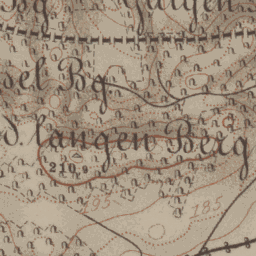 Bg.
sel Bg.
d. langen Berg
210,9
185
185